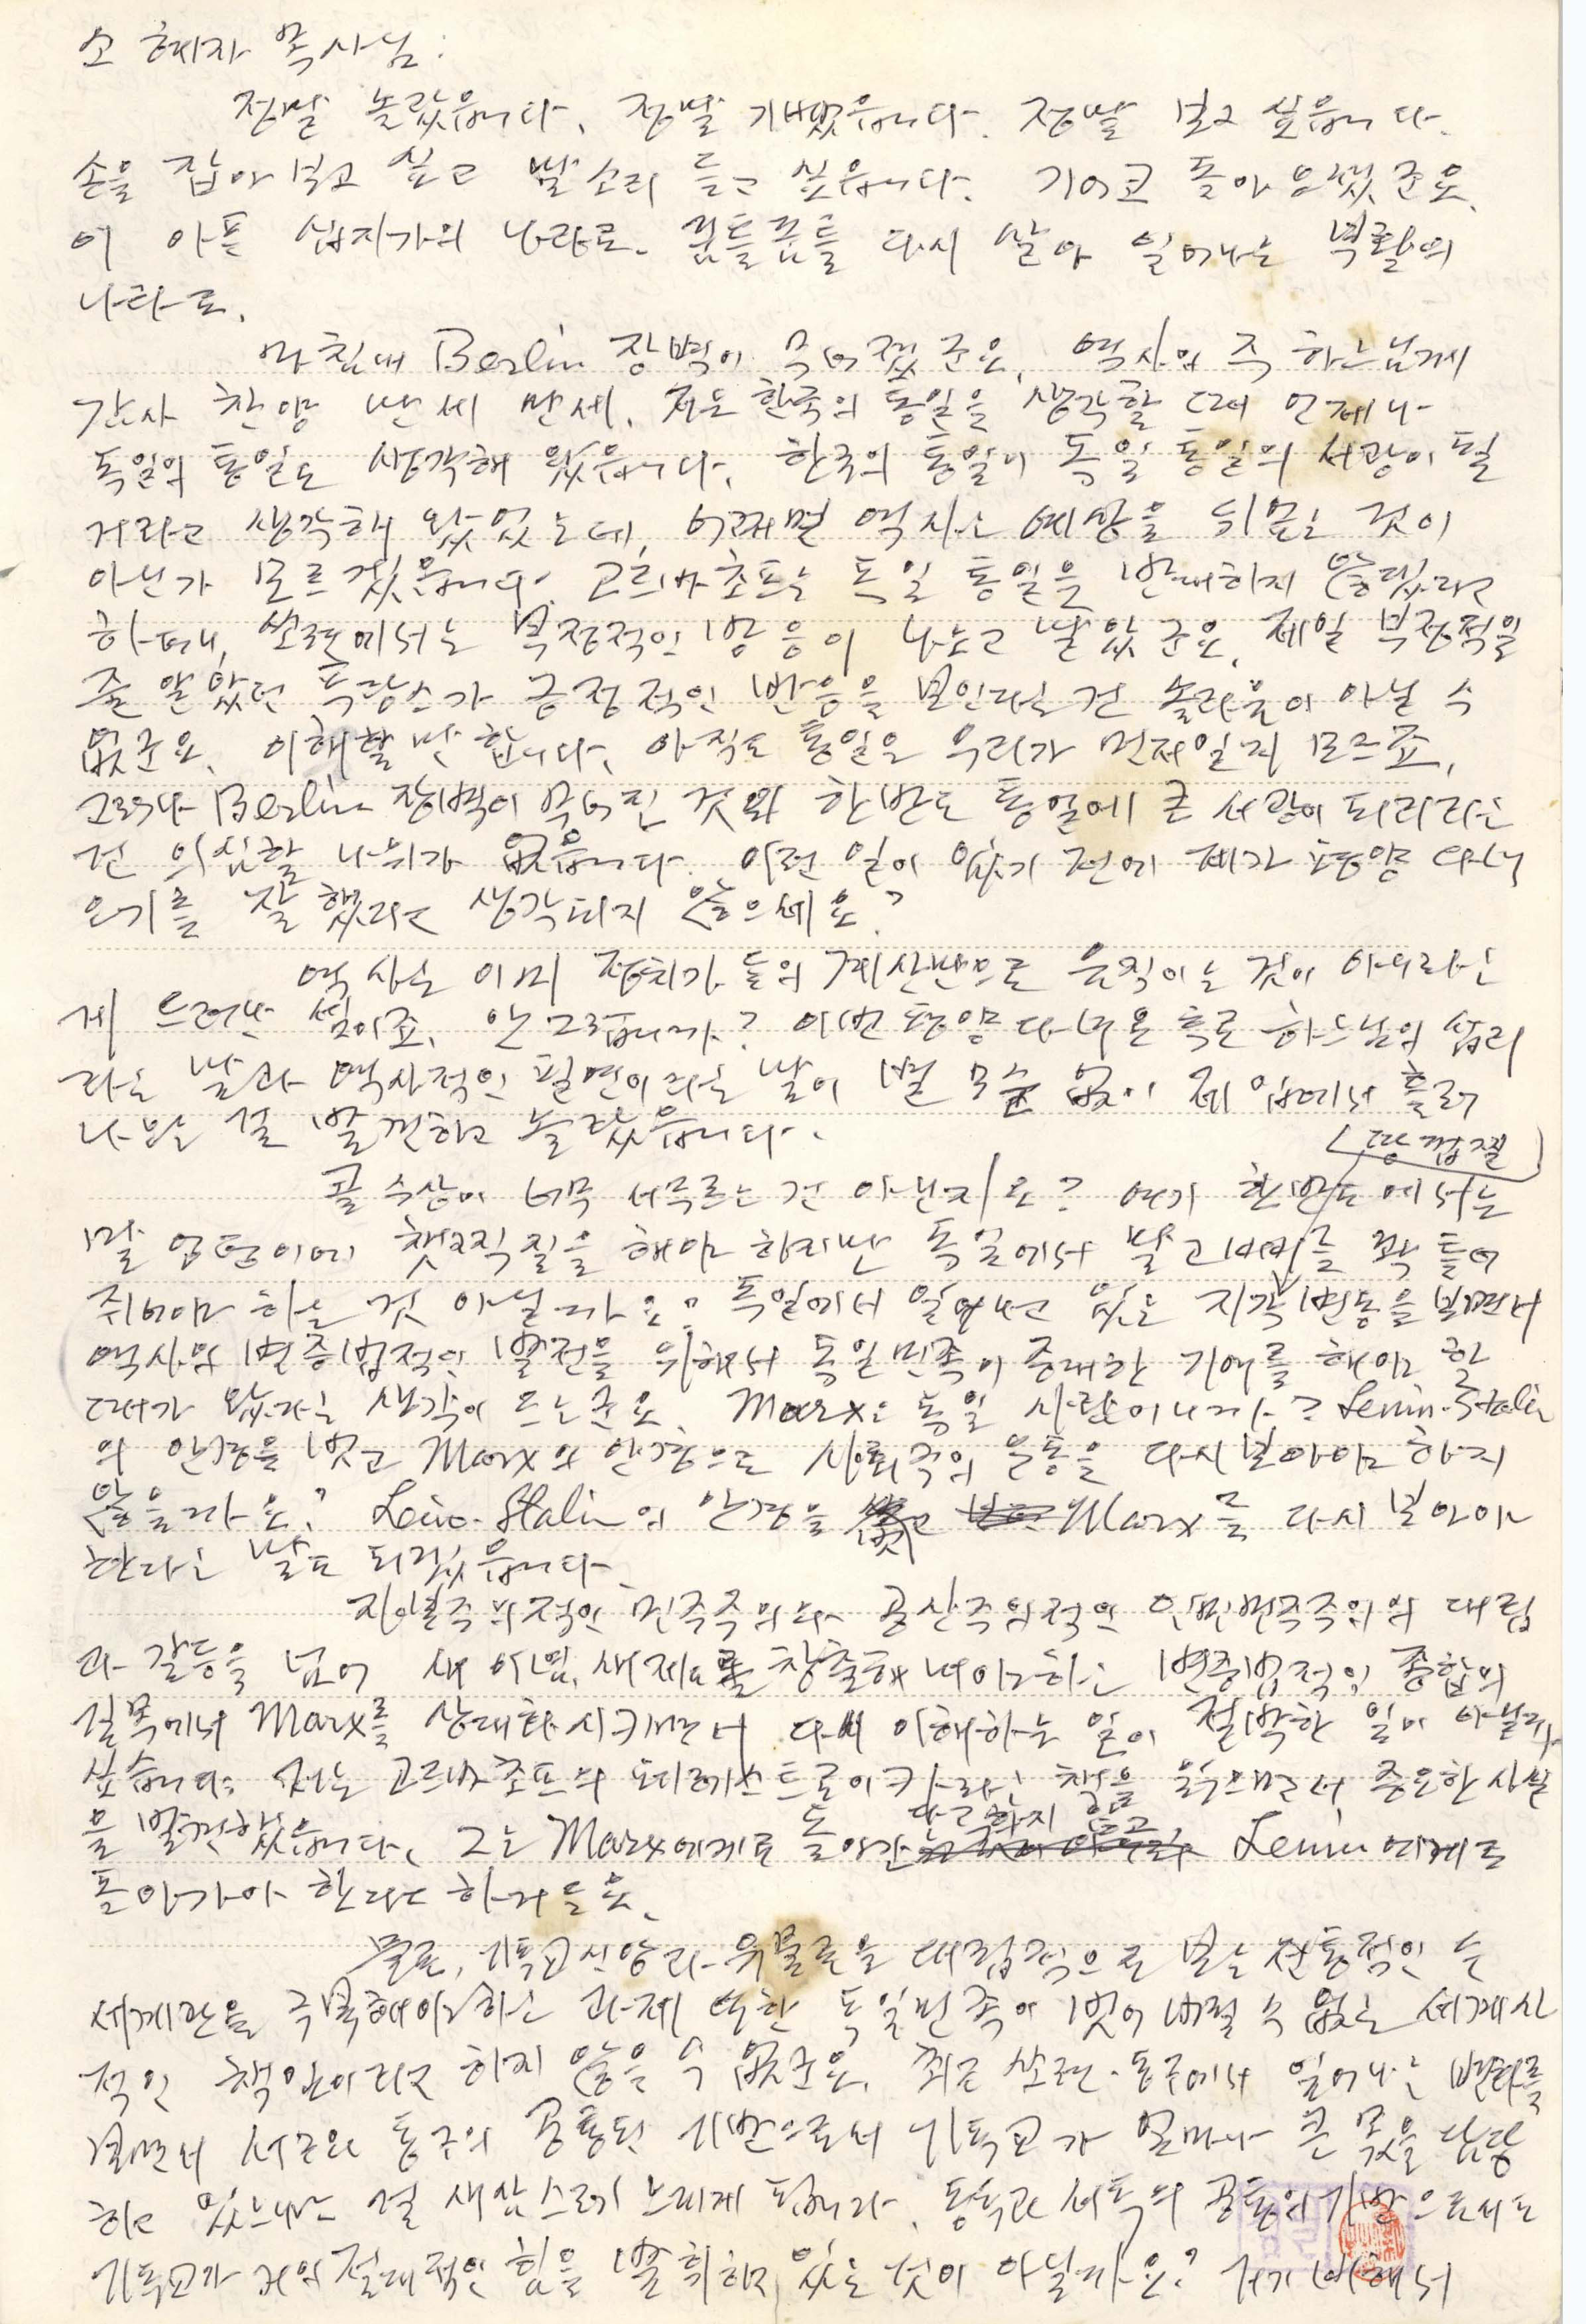 소 혜자 목사님:
정말 놀랐읍니다. 정말 기뻤읍니다. 정말 보고 싶읍니다.
손을 잡아 보고 싶고 말소리 듣고 싶읍니다. 기어코 돌아 오셨군요.
이 아픈 십자가의 나라로. 꿈틀꿈틀 다시 살아 일어나는 부활의
나라로.
마침내 Berlin 장벽이 무너졌군요. 역사의 주 하느님께
감사 찬양 만세 만세. 저는 한국의 통일을 생각할 때 언제나
독일의 통일도 생각해 왔읍니다. 한국의 통일이 독일 통일의 서광이 될
거라고 생각해 왔었는데, 어쩌면 역사는 예상을 뒤엎는 것이
아닌가 모르겠읍니다. 고르바초프는 독일 통일을 반대하지 않겠다고
하더니, 쏘련에서는 부정적인 방응이 나오고 말았군요. 제일 부정적일
줄 알았던 프랑스가 긍정적인 반응을 보인다는 건 놀라움이 아닐 수
없군요. 이해할 만 합니다. 아직도 통일은 우리가 먼저일지 모르죠.
그러나 Berlin 장벽이 무너진 것와 한반도 통일에 큰 서광이 되리라는
건 의심할 나위가 없읍니다. 이런 일이 있기 전에 제가 평양 다녀
오기를 잘 했다고 생각되지 않으세요?
역사는 이미 정치가 들의 계산만으로 움직이는 것이 아니라는
게 드러난 셈이죠. 안 그렇습니까? 이번 평양 다녀온 후로 하느님의 섭리
라는 말과 역사적인 필연이라는 말이 별 모순 없이 제 입에서 흘러
나오는 걸 발견하고 놀랐읍니다.
(땅껍질)
콜 수상이 너무 서두르는 건 아닌지요? 여기 한반도에서는
말 엉덩이에 챗찍질을 해야 하지만 독일에서 말고삐를 꽉 틀어
쥐어야 하는 것 아닐까요? 독일에서 일어나고 있는 지각변동을 보면서
역사의 변증법적인 발전을 위해서 독일민족이 중대한 기여를 해야 할
때가 왔다는 생각이 드는군요. Marx는 독일 사람이니까? Lenin-Stalin
의 안경을 벗고 Marx의 안경으로 사회주의 운동을 다시 보아야 하지
않을까요? Lenin-Stalin의 안경을 벗고 Marx를 다시 보아야
한다는 말도 되겠읍니다.
자본주의적인 민주주의와 공산주의적인 인민민주주의의 대립
과 갈등을 넘어 새 이념, 새 제도를 창출해 내야 하는 변증법적인 종합의
길목에서 Marx를 상대화 시키면서 다시 이해하는 일이 절박한 일이 아닐까
싶습니다. 저는 고르바초프의 페레스트로이카라는 책을 읽으면서 중요한 사실
을 발견했읍니다. 그는 Marx에게로 돌아간다고 하지 않고, Lenin에게로
돌아가야 한다고 하거든요.
물론, 기독교신앙과 유물론을 대립적으로 보는 전통적인 두
세계관을 극복해야 하는 과제 역한 독일민족이 벗어 버릴 수 없는 세계사
적인 책임이라고 하지 않을 수 없군요. 최근 쏘련·동구에서 일어나는 변화를
보면서 서구와 동구의 공통된 기반으로서 기독교가 얼마나 큰 몫을 담당
하고 있느냐는 걸 새삼스레 느끼게 됩니다. 동독과 서독의 공통의 기반으로서도
기독교가 거의 절대적인 힘을 발휘하고 있는 것이 아닐까요? 거기 비해서